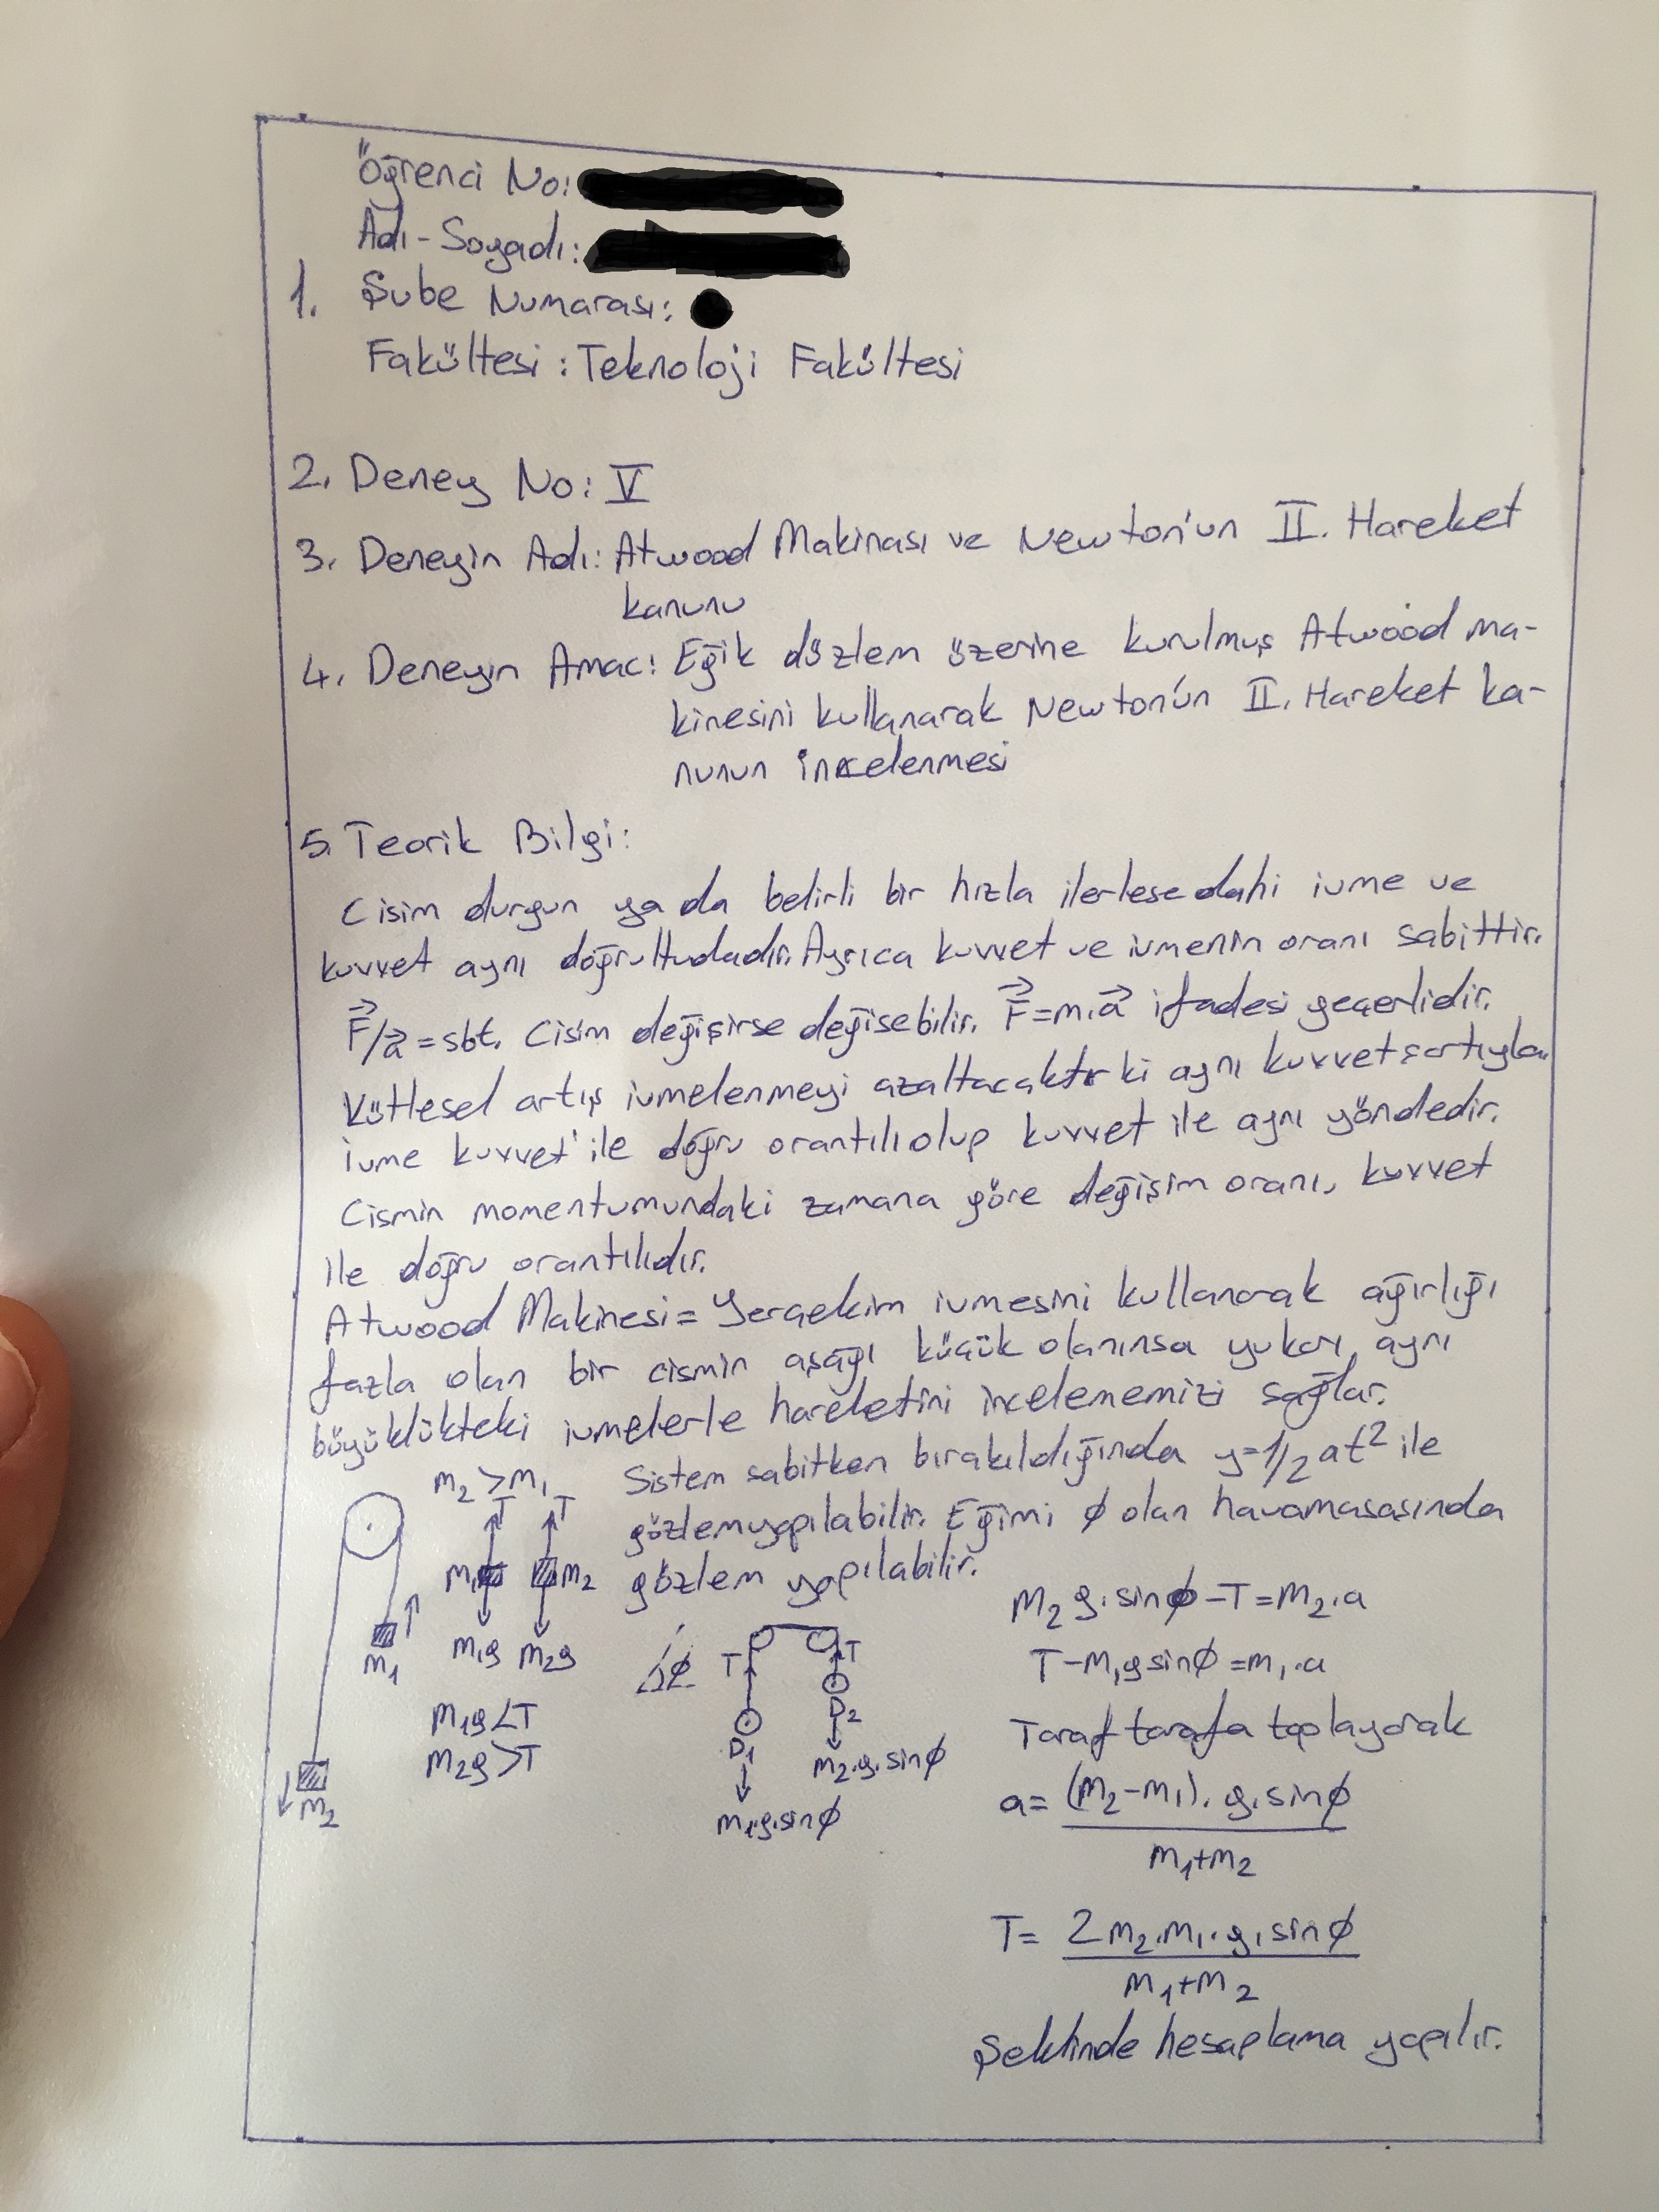 Öğrenci No:
Adı-Soyadı:
1. Şube Numarası:
Fakültesi: Teknoloji Fakültesi
2. Deney No: V
3. Deneyin Adı: Atwood Makinası ve Newton'un II. Hareket
kanunu
4. Deneyin Amac: Eğik düzlem üzerine kurulmuş Atwood ma-
kinesini kullanarak Newton'un II. Hareket ka-
nunun incelenmesi
5. Teorik Bilgi:
Cisim durgun ya da belirli bir hızla ilerlese dahi ivme ve
kuvvet aynı doğrultudadır. Ayrıca kuvvet ve ivmenin oranı sabittir.
F⃗/a⃗=sbt. Cisim değişirse değişebilir. F⃗=m.a⃗ ifadesi geçerlidir.
Kütlesel artış ivmelenmeyi azaltacaktır ki aynı kuvvet şartıyla.
İvme kuvvet ile doğru orantılı olup kuvvet ile aynı yöndedir.
Cismin momentumundaki zamana göre değişim oranı, kuvvet
ile doğru orantılıdır.
Atwood Makinesi= Yerçekim ivmesini kullanarak ağırlığı
fazla olan bir cismin aşağı küçük olanınsa yukarı, aynı
büyüklükteki ivmelerle hareketini incelememizi sağlar.
m2 > m1 Sistem sabitken bırakıldığında y=1/2 at² ile
T T gözlem yapılabilir. Eğimi ϕ olan havamasasında
m1 m2 gözlem yapılabilir.
m1 m1g m2g
m1g<T
m2g>T
m2
ϕ T T
D1 D2
m2.g.sinϕ
m1.g.sinϕ
m2 g.sinϕ-T=m2.a
T-m1gsinϕ=m1.a
Taraf tarafa toplayarak
a= (m2-m1).g.sinϕ
m1+m2
T= 2m2.m1.g.sinϕ
m1+m2
şeklinde hesaplama yapılır.